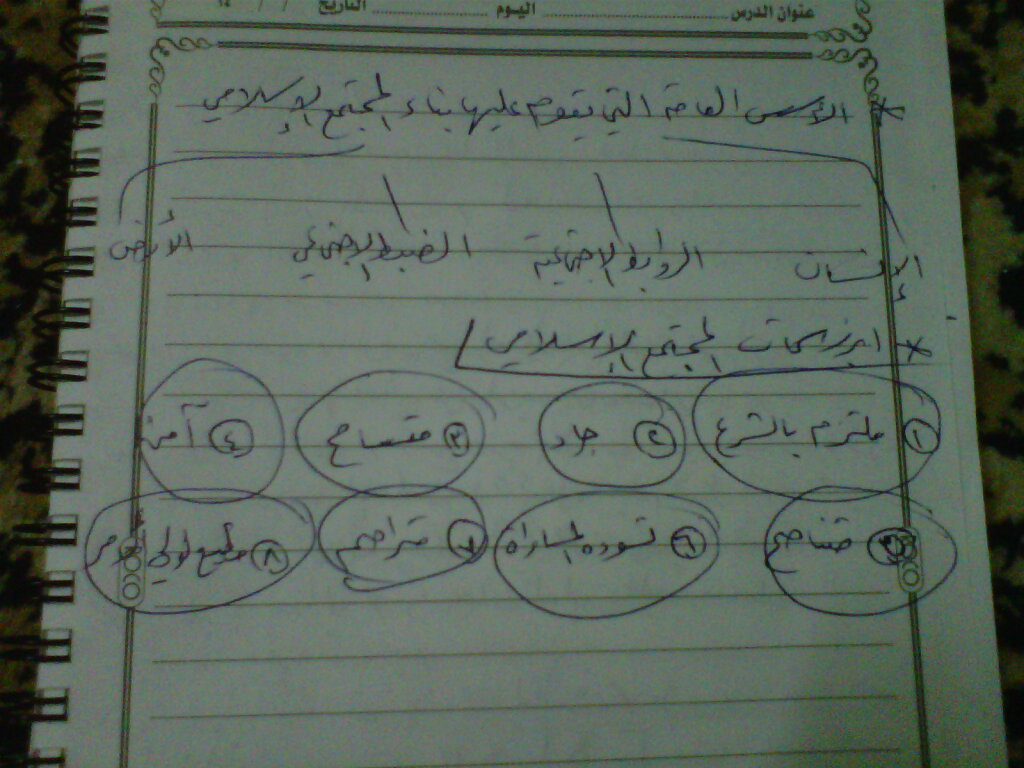 عنوان الدرس ........................ اليوم ........................ التاريخ / / ١٤
* الأسس العامة التي يقوم عليها بناء المجتمع الإسلامي
الإنسان الروابط الاجتماعية الضبط الاجتماعي الأرض
* ابرز سمات المجتمع الإسلامي
١ ملتزم بالشرع ٢ جاد ٣ متسامح ٤ آمن
متناصح ٦ تسوده المساواة ٧ متراحم ٨ مطيع لولي الأمر